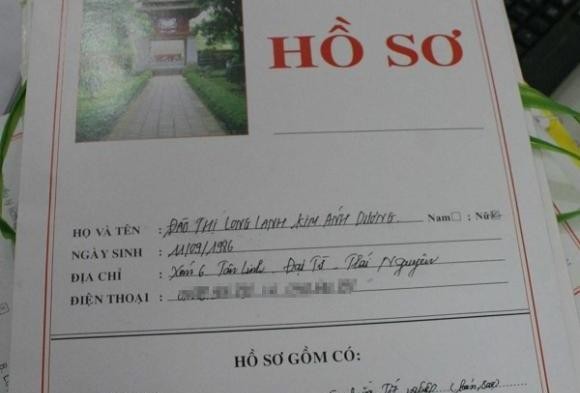 HỒ SƠ
HỌ VÀ TÊN : ĐÀO THỊ LONG LANH KIM ÁNH DƯƠNG Nam ☐ : Nữ ☒
NGÀY SINH : 11/09/1986
ĐỊA CHỈ : Xóm 6. Tân Linh. Đại Từ - Thái Nguyên
ĐIỆN THOẠI :
HỒ SƠ GỒM CÓ:
(bản sao)